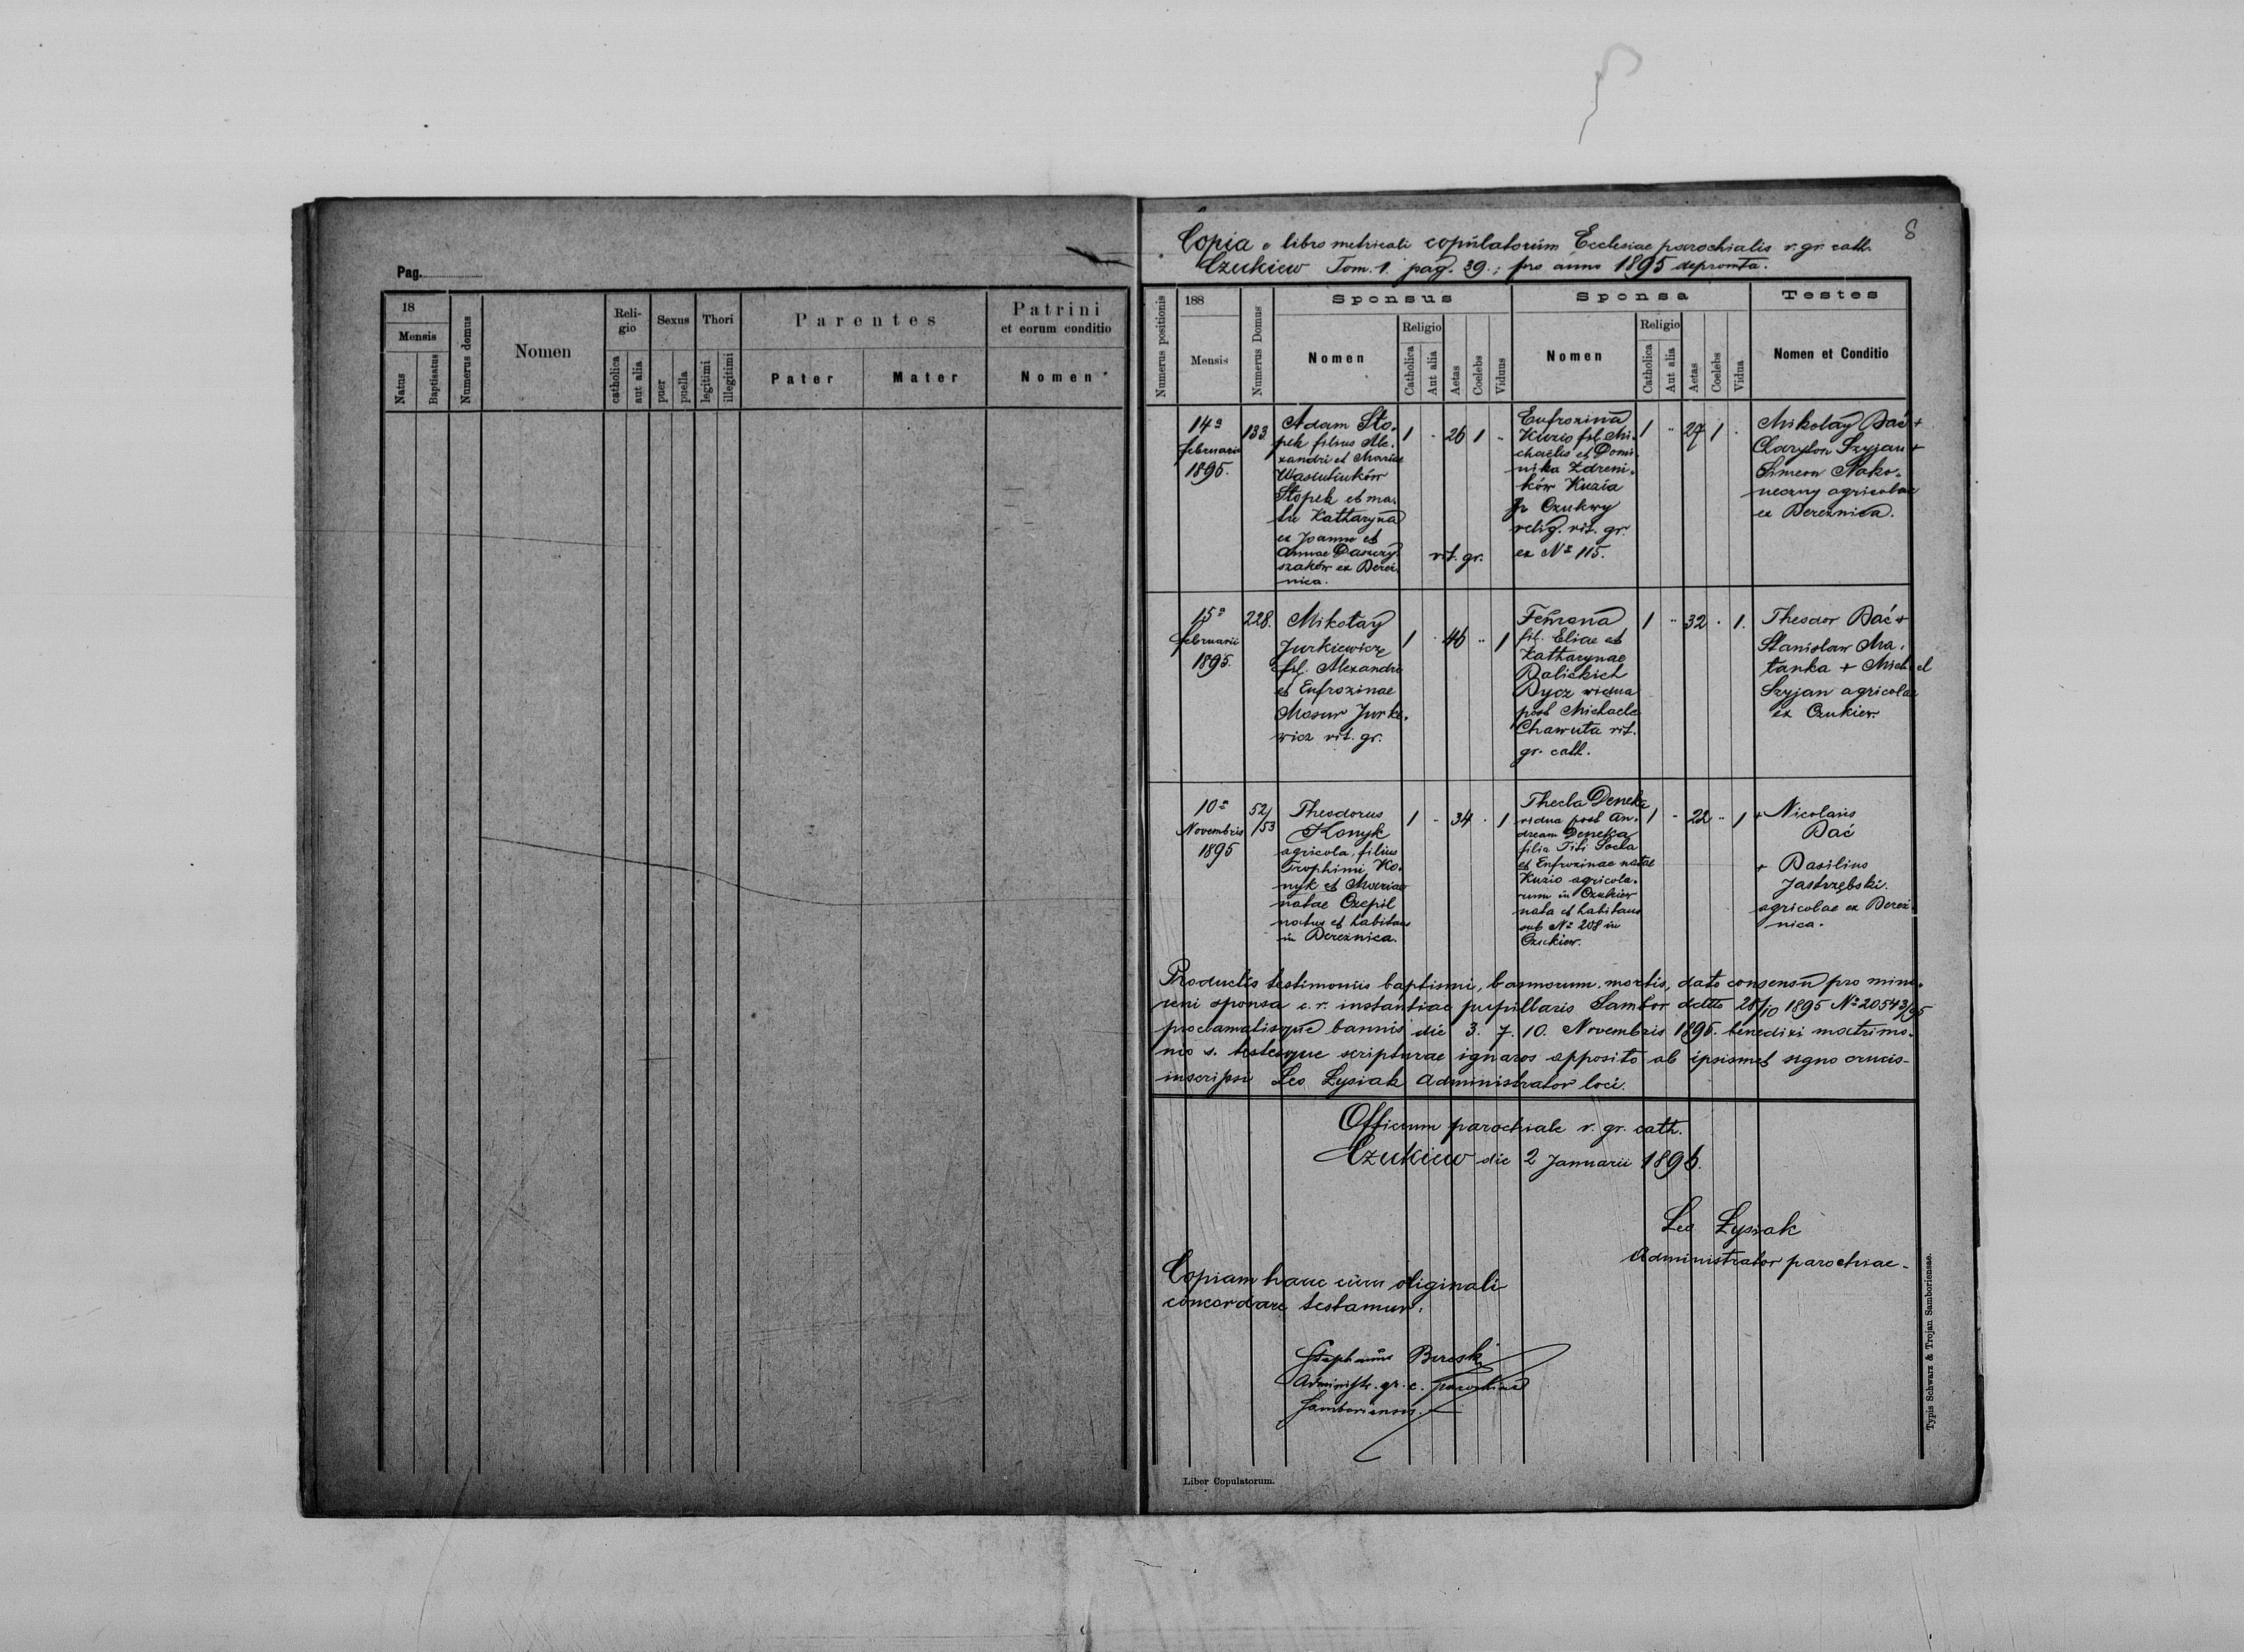 Pag.
18
Mensis
Natus
Baptisatus
Numerus domus
Nomen
Reli-
gio
catholica
aut alia
Sexus
puer
puella
Thori
legitimi
illegitimi
Parentes
Pater
Mater
Patrini
et eorum conditio
Nomen
8
Copia e libro metricali copulatorum Ecclesiae parochialis r. gr. cath.
Czukiew Tom. 1. pag. 39.; pro anno 1895 depromta.
Numerus positionis
188
Mensis
Numerus Domus
Sponsus
Nomen
Religio
Catholica
Aut alia
Aetas
Coelebs
Viduus
Sponsa
Nomen
Religio
Catholica
Aut alia
Aetas
Coelebs
Vidua
Testes
Nomen et Conditio
14a
februarii
1895.
133
Adam Sto-
pek filius Ale-
xandri et Mariae
Wasiutuków
Stopek et ma-
tre Katharyna
ex Joanne et
Annae
szaków ex Berez-
nica.
1 " 26 1 "
rit. gr.
Eufrozina
Kuzio fil. Mi-
chaelis et Domi-
nika Zdreni-
ków Kuzia
Czukwy
relig. rit. gr.
ex No 115.
1 " 27 1 "
Mikołay Bać +
Charyton Szyjan +
Simeon Nako-
neczny agricolae
ex Bereznica.
15a
februarii
1895.
228.
Mikołay
Jurkiewicz
fil. Alexandri
et Eufrozinae
Mosur Jurke-
wicz rit. gr.
1 " 46 " 1
Fenrona
fil. Eliae et
Katharynae
Balickich
Bycz widua
post Michaele
Chawuta rit.
gr. cath.
1 " 32 " 1.
Theodor Bać +
Stanisław Ma-
tanka + Michael
Szyjan agricolae
ex Czukiew
10a
Novembris
1895
52/
/53
Theodorus
Konyk
agricola, filius
Trophimi Ko-
nyk et Mariae
natae Czepil
natus et habitans
in Bereznica.
1 " 34 " 1
Thecla Deneka
vidua post An-
dream Deneka
filia Titi Socka
et Eufrozinae natae
Kuzio agricola-
rum in Czukiew
nata et habitans
sub No 208 in
Czukiew.
1 " 22 " 1
+ Nicolaus
Bać
+ Basilius
Jastrzębski.
agricolae ex Berez-
nica.
Productis testimoniis baptismi, bannorum, mortis, dato consensu pro mino-
reni sponsa c. r. instantiae pupillaris Sambor ddtto 28/10 1895 No 20543/95
proclamatisque bannis die 3. 7. 10. Novembris 1895. benedixi matrimo-
nio s. testesque scripturae ignaros apposito ab ipsismet signo crucis
inscripsi Leo Łysiak Administrator loci.
Officium parochiale r. gr. cath.
Czukiew die 2 Januarii 1896.
Leo Łysiak
Administrator parochiae
Copiam hanc cum originali
concordare testamur.
Stephanus Bereski
Administr. gr. c. parochiae
Samboriensis.
Liber Copulatorum.
Typis Schwarz & Trojan Samboriensae.